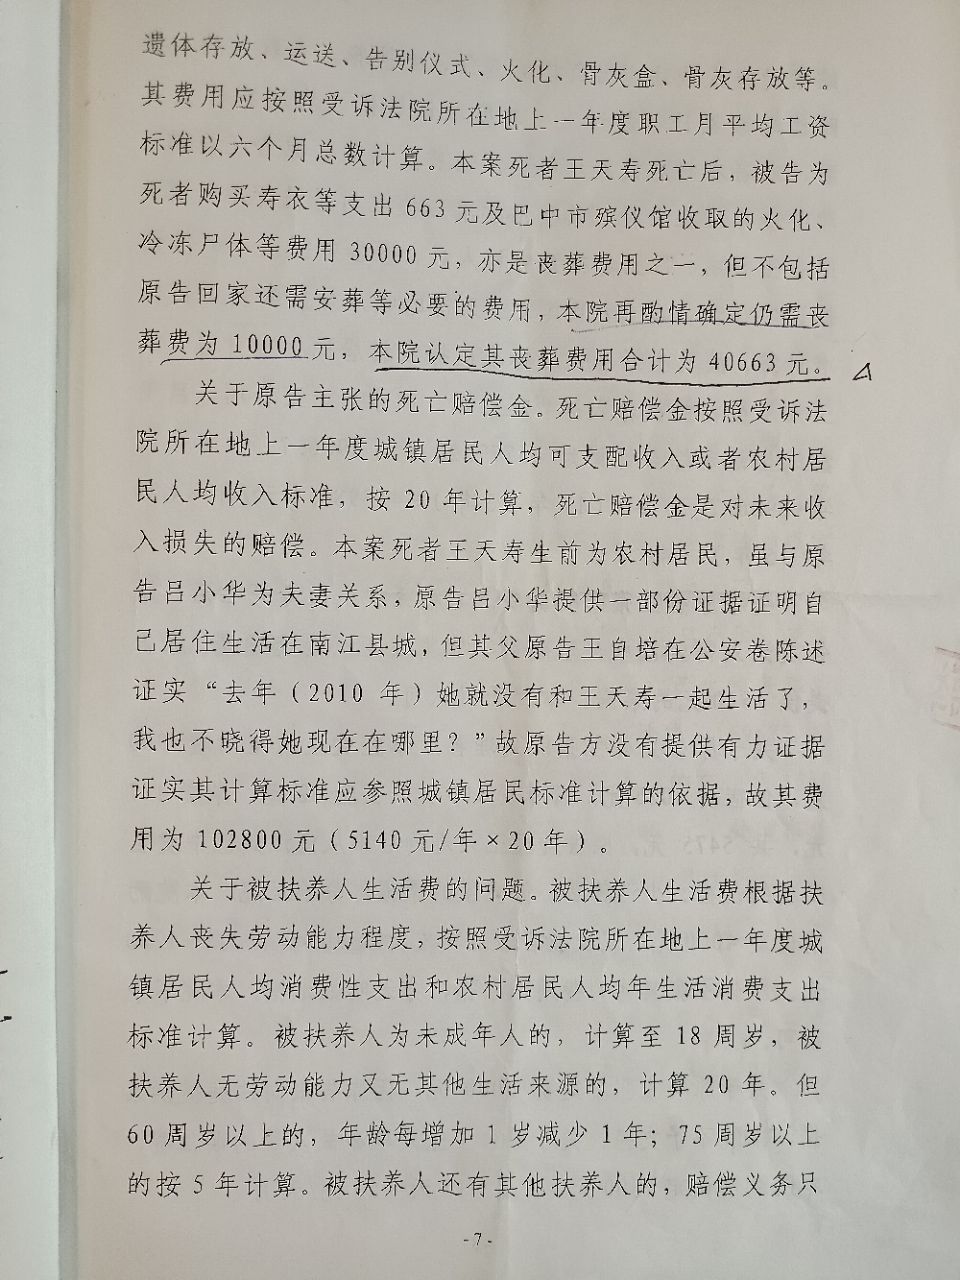 遗体存放、运送、告别仪式、火化、骨灰盒、骨灰存放等。
其费用应按照受诉法院所在地上一年度职工月平均工资
标准以六个月总数计算。本案死者王天寿死亡后，被告为
死者购买寿衣等支出 663 元及巴中市殡仪馆收取的火化、
冷冻尸体等费用 30000 元，亦是丧葬费用之一，但不包括
原告回家还需安葬等必要的费用，本院再酌情确定仍需丧
葬费为 10000 元，本院认定其丧葬费用合计为 40663 元。
关于原告主张的死亡赔偿金。死亡赔偿金按照受诉法
院所在地上一年度城镇居民人均可支配收入或者农村居
民人均收入标准，按 20 年计算，死亡赔偿金是对未来收
入损失的赔偿。本案死者王天寿生前为农村居民，虽与原
告吕小华为夫妻关系，原告吕小华提供一部份证据证明自
己居住生活在南江县城，但其父原告王自培在公安卷陈述
证实“去年（2010 年）她就没有和王天寿一起生活了，
我也不晓得她现在在哪里？”故原告方没有提供有力证据
证实其计算标准应参照城镇居民标准计算的依据，故其费
用为 102800 元（5140 元/年×20 年）。
关于被扶养人生活费的问题。被扶养人生活费根据扶
养人丧失劳动能力程度，按照受诉法院所在地上一年度城
镇居民人均消费性支出和农村居民人均年生活消费支出
标准计算。被扶养人为未成年人的，计算至 18 周岁，被
扶养人无劳动能力又无其他生活来源的，计算 20 年。但
60 周岁以上的，年龄每增加 1 岁减少 1 年；75 周岁以上
的按 5 年计算。被扶养人还有其他扶养人的，赔偿义务只
- 7 -